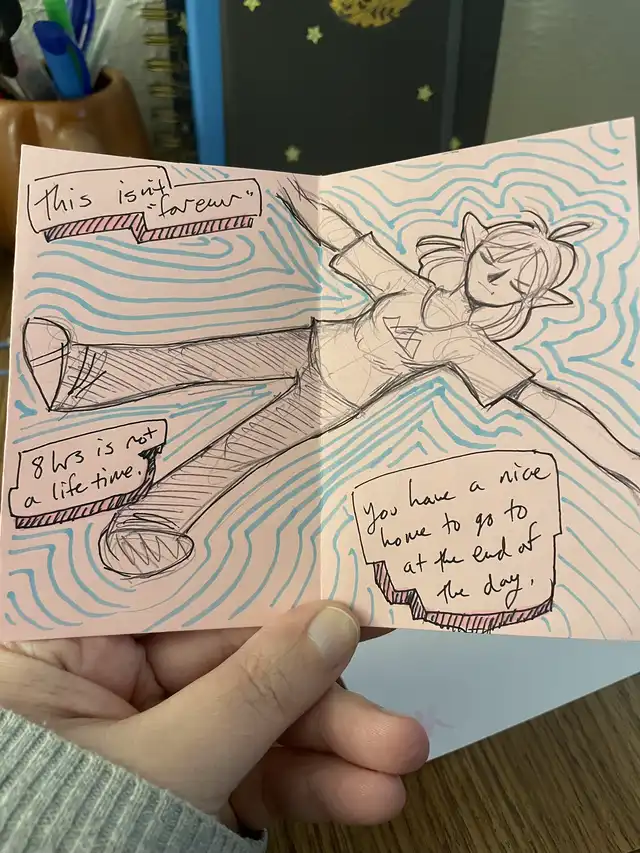 This isn't
"forever"
8 hrs is not
a life time.
You have a nice
home to go to
at the end of
the day.